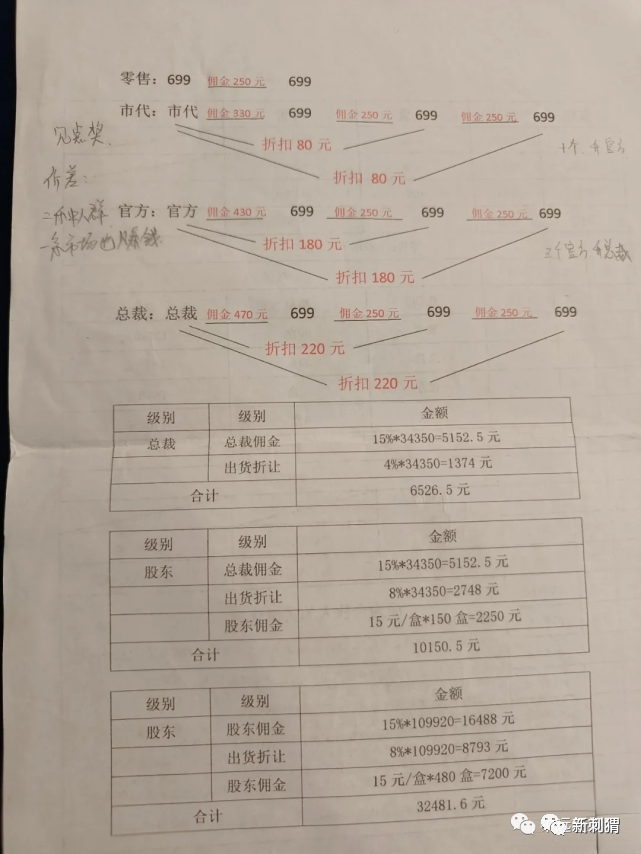 零售：699 佣金 250 元 699
市代：市代 佣金 330 元 699 佣金 250 元 699 佣金 250 元 699
折扣 80 元
折扣 80 元
价差：
官方：官方 佣金 430 元 699 佣金 250 元 699 佣金 250 元 699
折扣 180 元
折扣 180 元
总裁：总裁 佣金 470 元 699 佣金 250 元 699 佣金 250 元 699
折扣 220 元
折扣 220 元
级别 级别 金额
总裁 总裁佣金 15%*34350=5152.5 元
出货折让 4%*34350=1374 元
合计 6526.5 元
级别 级别 金额
股东 总裁佣金 15%*34350=5152.5 元
出货折让 8%*34350=2748 元
股东佣金 15 元/盒*150 盒=2250 元
合计 10150.5 元
级别 级别 金额
股东 股东佣金 15%*109920=16488 元
出货折让 8%*109920=8793 元
股东佣金 15 元/盒*480 盒=7200 元
合计 32481.6 元
新刺猬